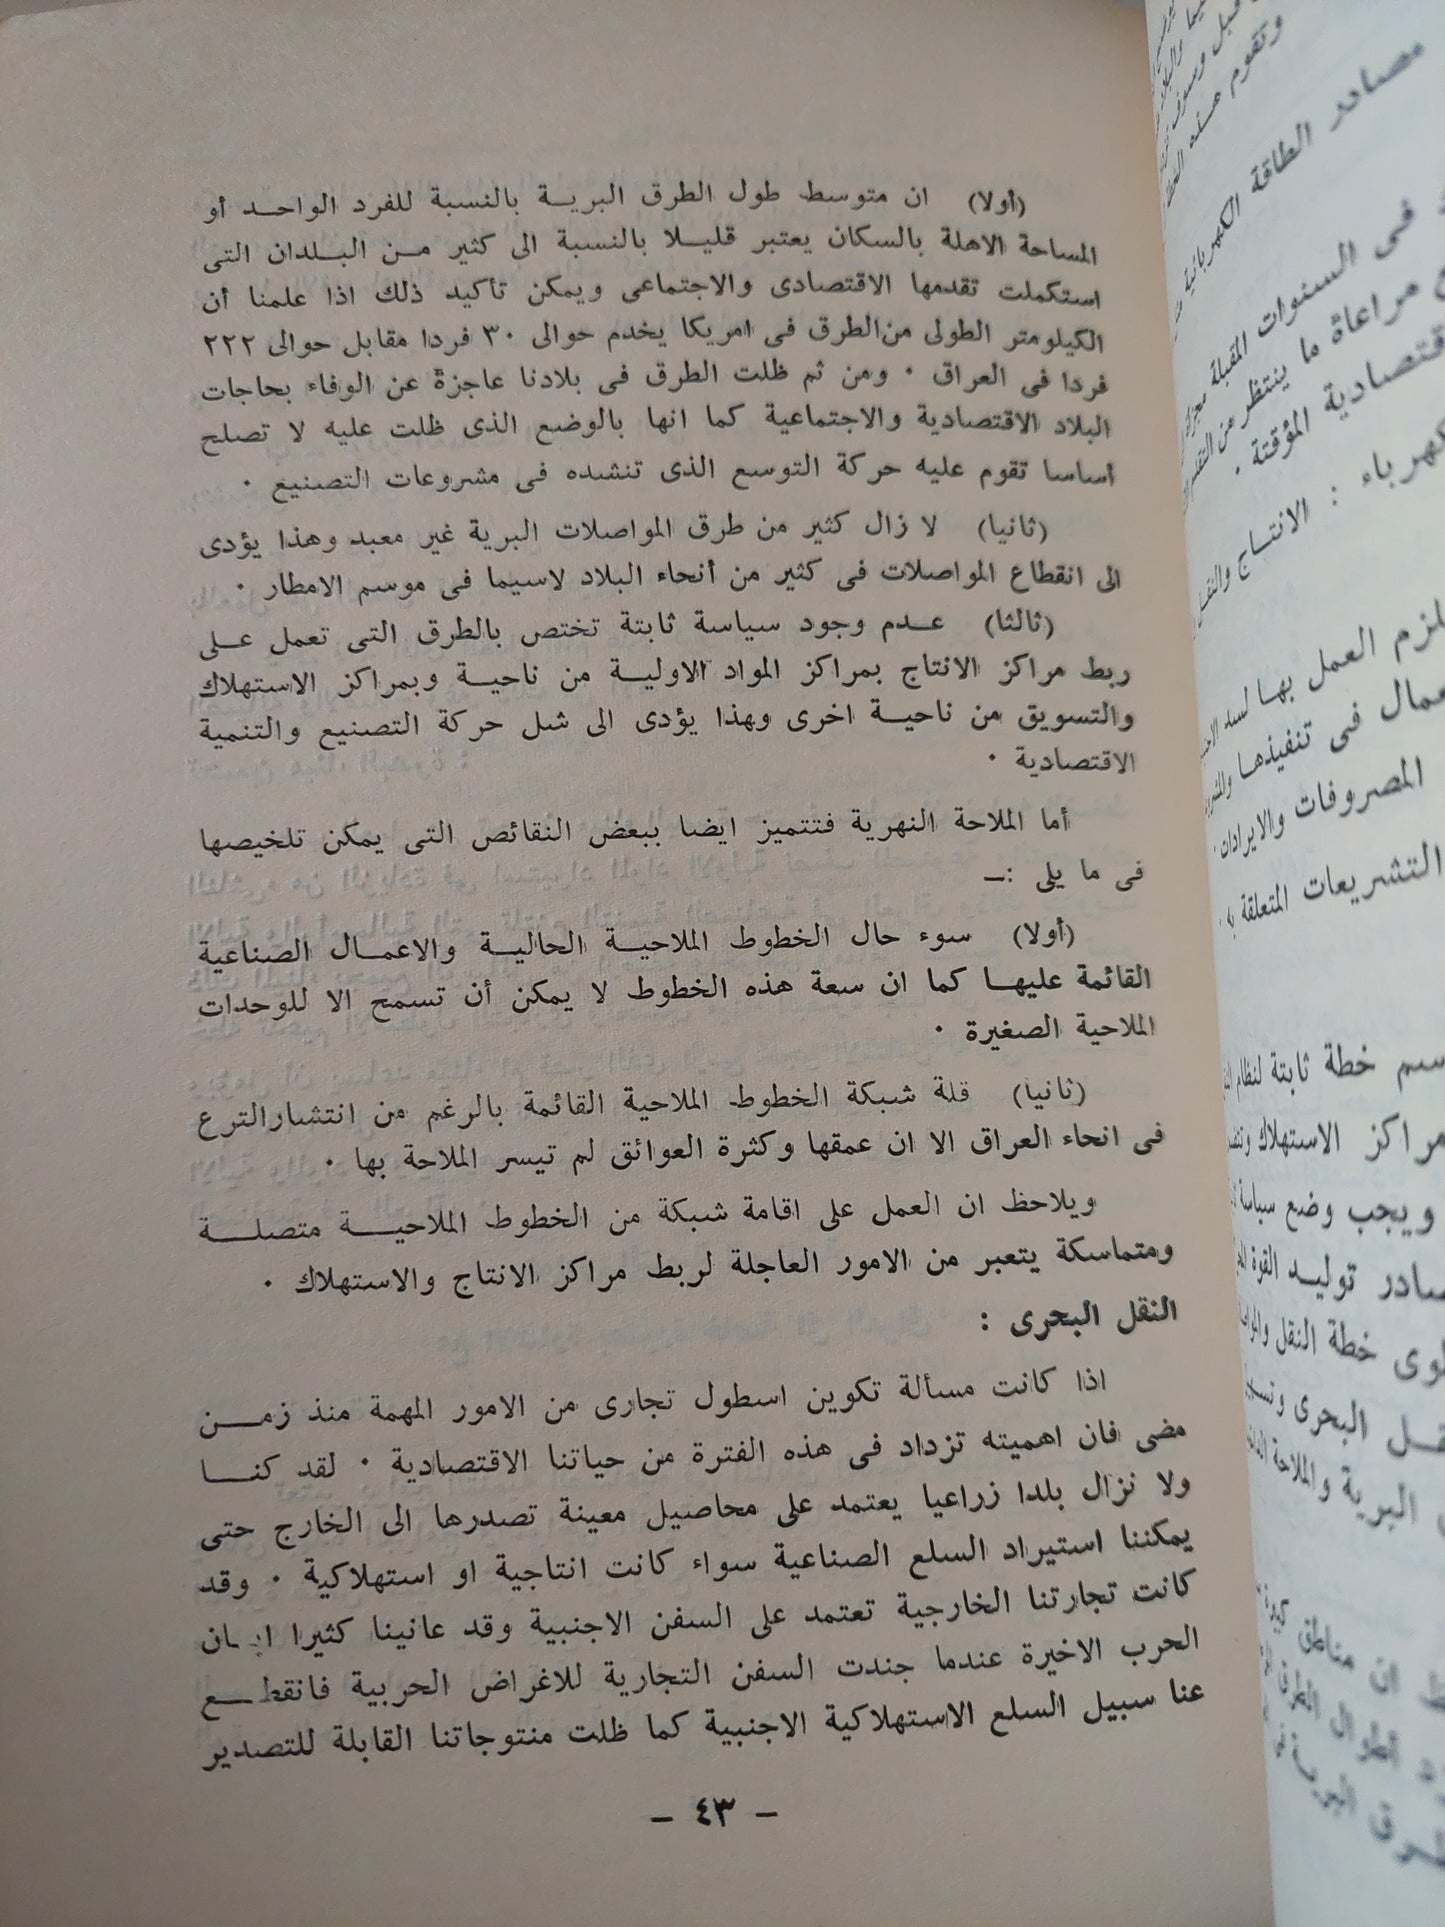 (أولا) ان متوسط طول الطرق البريــة بالنسبة للفرد الواحــد أو
المساحة الاهلة بالسكان يعتبر قليــلا بالنسبة الى كثير مــن البــلدان التى
استكملت تقدمها الاقتصادى والاجتماعى ويمكن تأكيد ذلك اذا علمنا أن
الكيلومتر الطولى من الطرق فى امريكا يخدم حوالى ٣٠ فردا مقابل حوالى ٢٢٢
فردا فى العراق ٠ ومن ثم ظلت الطرق فى بلادنا عاجزة عن الوفاء بحاجات
البلاد الاقتصادية والاجتماعية كما انها بالوضع الذى ظلت عليه لا تصلح
أساسا تقوم عليه حركة التوسع الذى تنشده فى مشروعات التصنيع ٠
(ثانيا) لا زال كثير من طرق المواصلات البرية غير معبد وهذا يؤدى
الى انقطاع المواصلات فى كثير من أنحاء البلاد لاسيما فى موسم الامطار ٠
(ثالثا) عــدم وجود سياسة ثابتة تختص بالطرق التى تعمل علــى
ربط مراكز الانتاج بمراكز المواد الاوليــة من ناحيــة وبمراكز الاستهلاك
والتسويق من ناحيــة اخرى وهذا يؤدى الى شل حركة التصنيع والتنمية
الاقتصادية ٠
أما الملاحة النهرية فتتميز ايضا ببعض النقائص التى يمكن تلخيصها
فى ما يلى :ــ
(أولا) سوء حال الخطوط الملاحيــة الحاليــة والاعمــال الصناعية
القائمة عليهــا كما ان سعة هذه الخطوط لا يمكن أن تسمح الا للوحدات
الملاحية الصغيرة ٠
(ثانيا) قلة شبكة الخطوط الملاحية القائمة بالرغم من انتشارالترع
فى انحاء العراق الا ان عمقها وكثرة العوائق لم تيسر الملاحة بها ٠
ويلاحظ ان العمل على اقامة شبكة من الخطوط الملاحيــة متصلــة
ومتماسكة يتعبر من الامور العاجلة لربط مراكز الانتاج والاستهلاك ٠
النقل البحرى :
اذا كانت مسألة تكوين اسطول تجارى من الامور المهمة منذ زمــن
مضى فان اهميته تزداد فى هذه الفترة من حياتنا الاقتصادية ٠ لقد كنــا
ولا نزال بلدا زراعيا يعتمد على محاصيل معينة تصدرها الى الخارج حتى
يمكننا استيراد السلع الصناعية سواء كانت انتاجية او استهلاكية ٠ وقد
كانت تجارتنا الخارجية تعتمد على السفن الاجنبية وقد عانينا كثيرا ابــان
الحرب الاخيرة عندما جندت السفن التجارية للاغراض الحربية فانقطــع
عنا سبيل السلع الاستهلاكية الاجنبية كما ظلت منتوجاتنا القابلة للتصدير
– ٤٣ –
مصادر الطاقة الكهربائية
فى السنوات المقبلة
مراعاة ما ينتظر من
المؤقتة ٠
: الانتــاج والنقل
العمل بهــا لسد
فى تنفيذهــا
المصروفات والايرادات ٠
التشريعات المتعلقة
خطة ثابتة لنظام
الاستهلاك
ويجب وضع سياسة
توليــد القوة
خطة النقل
البحرى
البرية والملاحة
ان مناطق